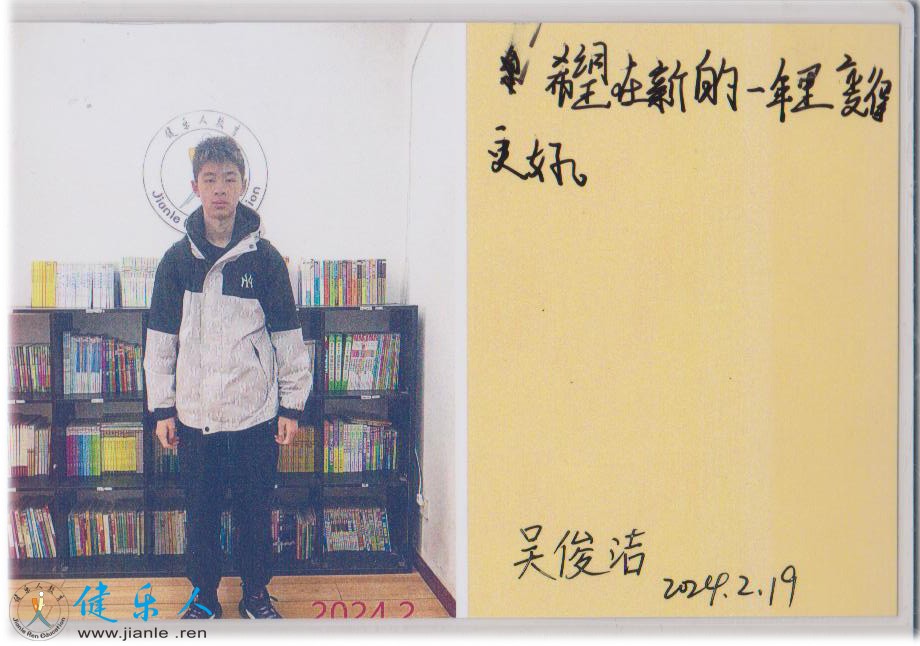 希望在新的一年里变得
更好。
吴俊洁
2024.2.19
健乐人教育
Jianle
ion
2024.2
健乐人教育
Jianle Ren Education
健乐人
www.jianle .ren